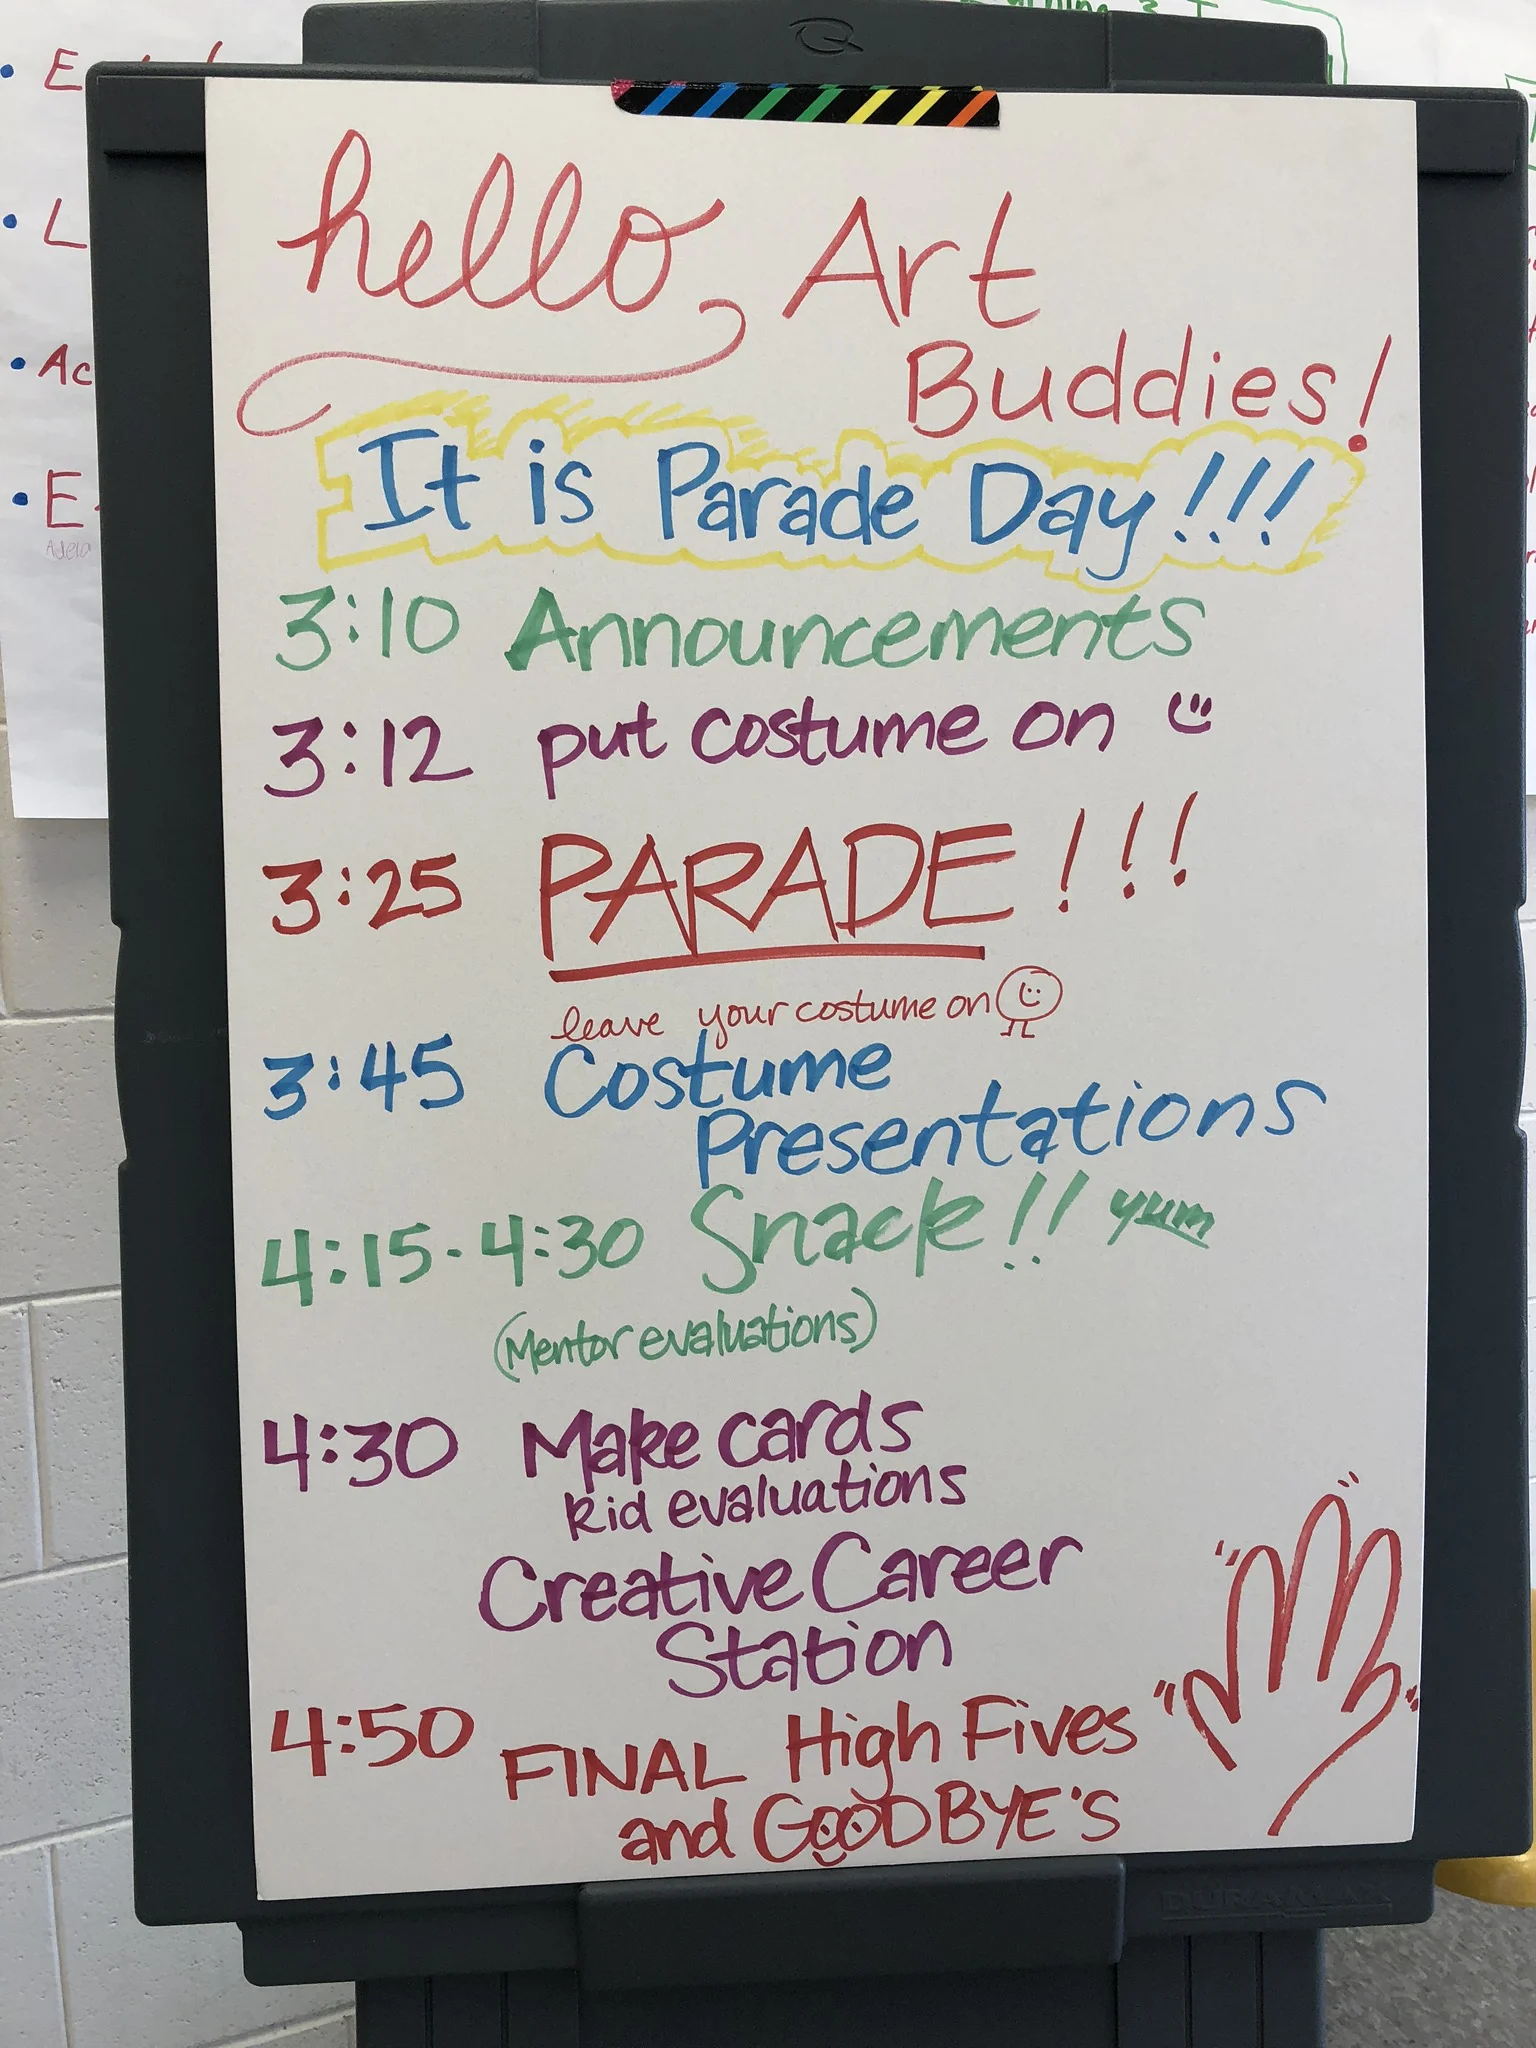 hello, Art
Buddies!
It is Parade Day!!!
3:10 Announcements
3:12 put costume on
3:25 PARADE!!!
leave your costume on
3:45 Costume
Presentations
4:15-4:30 Snack!! yum
(Mentor evaluations)
4:30 Make cards
kid evaluations
Creative Career
Station
4:50 FINAL High Fives
and GOODBYE'S
DURAMAX
Adela